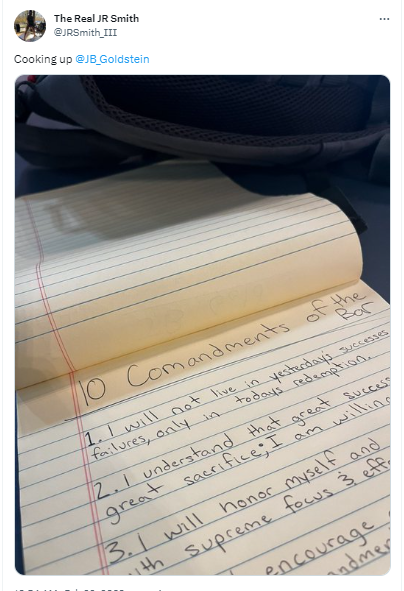 The Real JR Smith
@JRSmith_III
Cooking up @JB_Goldstein
10 Comandments of the
Bar
1. I will not live in yesterdays successes
failures, only in todays redemption.
2. I understand that great success
great sacrifice; I am willing
3. I will honor myself and
with supreme focus &
encourage